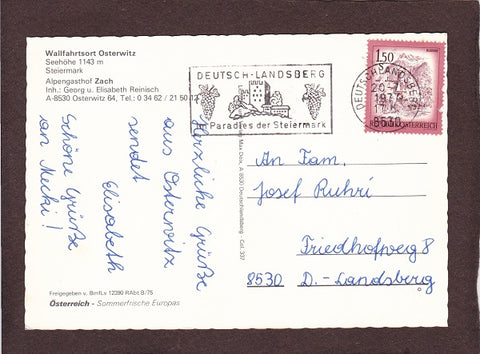 Wallfahrtsort Osterwitz
Seehöhe 1143 m
Steiermark
Alpengasthof Zach
Inh.: Georg u. Elisabeth Reinisch
A-8530 Osterwitz 64, Tel.: 0 34 62 / 21 50
Herzliche Grüße
aus Osterwitz
sendet
Elisabeth
Schöne Grüße
an Mecki!
Freigegeben v. Bmflv 12390 RAbt.B/75
Österreich - Sommerfrische Europas
DEUTSCH-LANDSBERG
Paradies der Steiermark
DEUTSCHLANDSBERG
8530
1.50
ÖSTERREICH
A 8530 Deutschlandsberg - Col. 337
An Fam.
Josef Ruhri
Friedhofweg 8
8530 D.-Landsberg